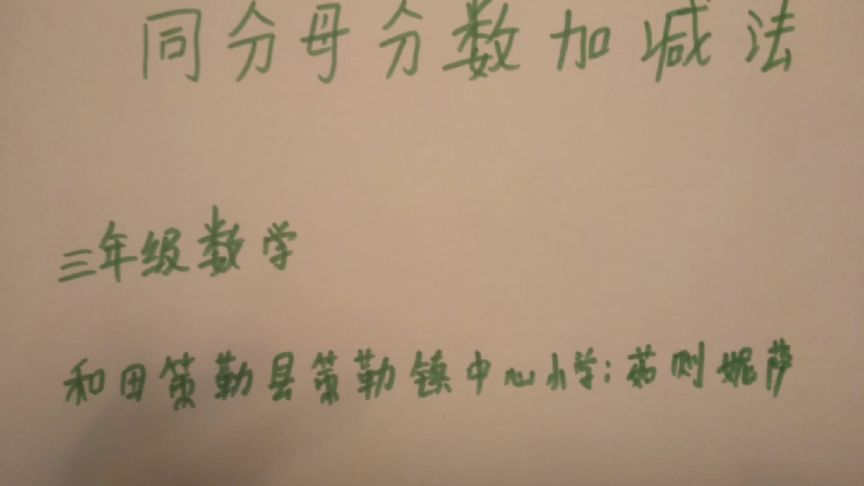 同分母分数加减法
三年级数学
和田策勒县策勒镇中心小学:茹则妮萨